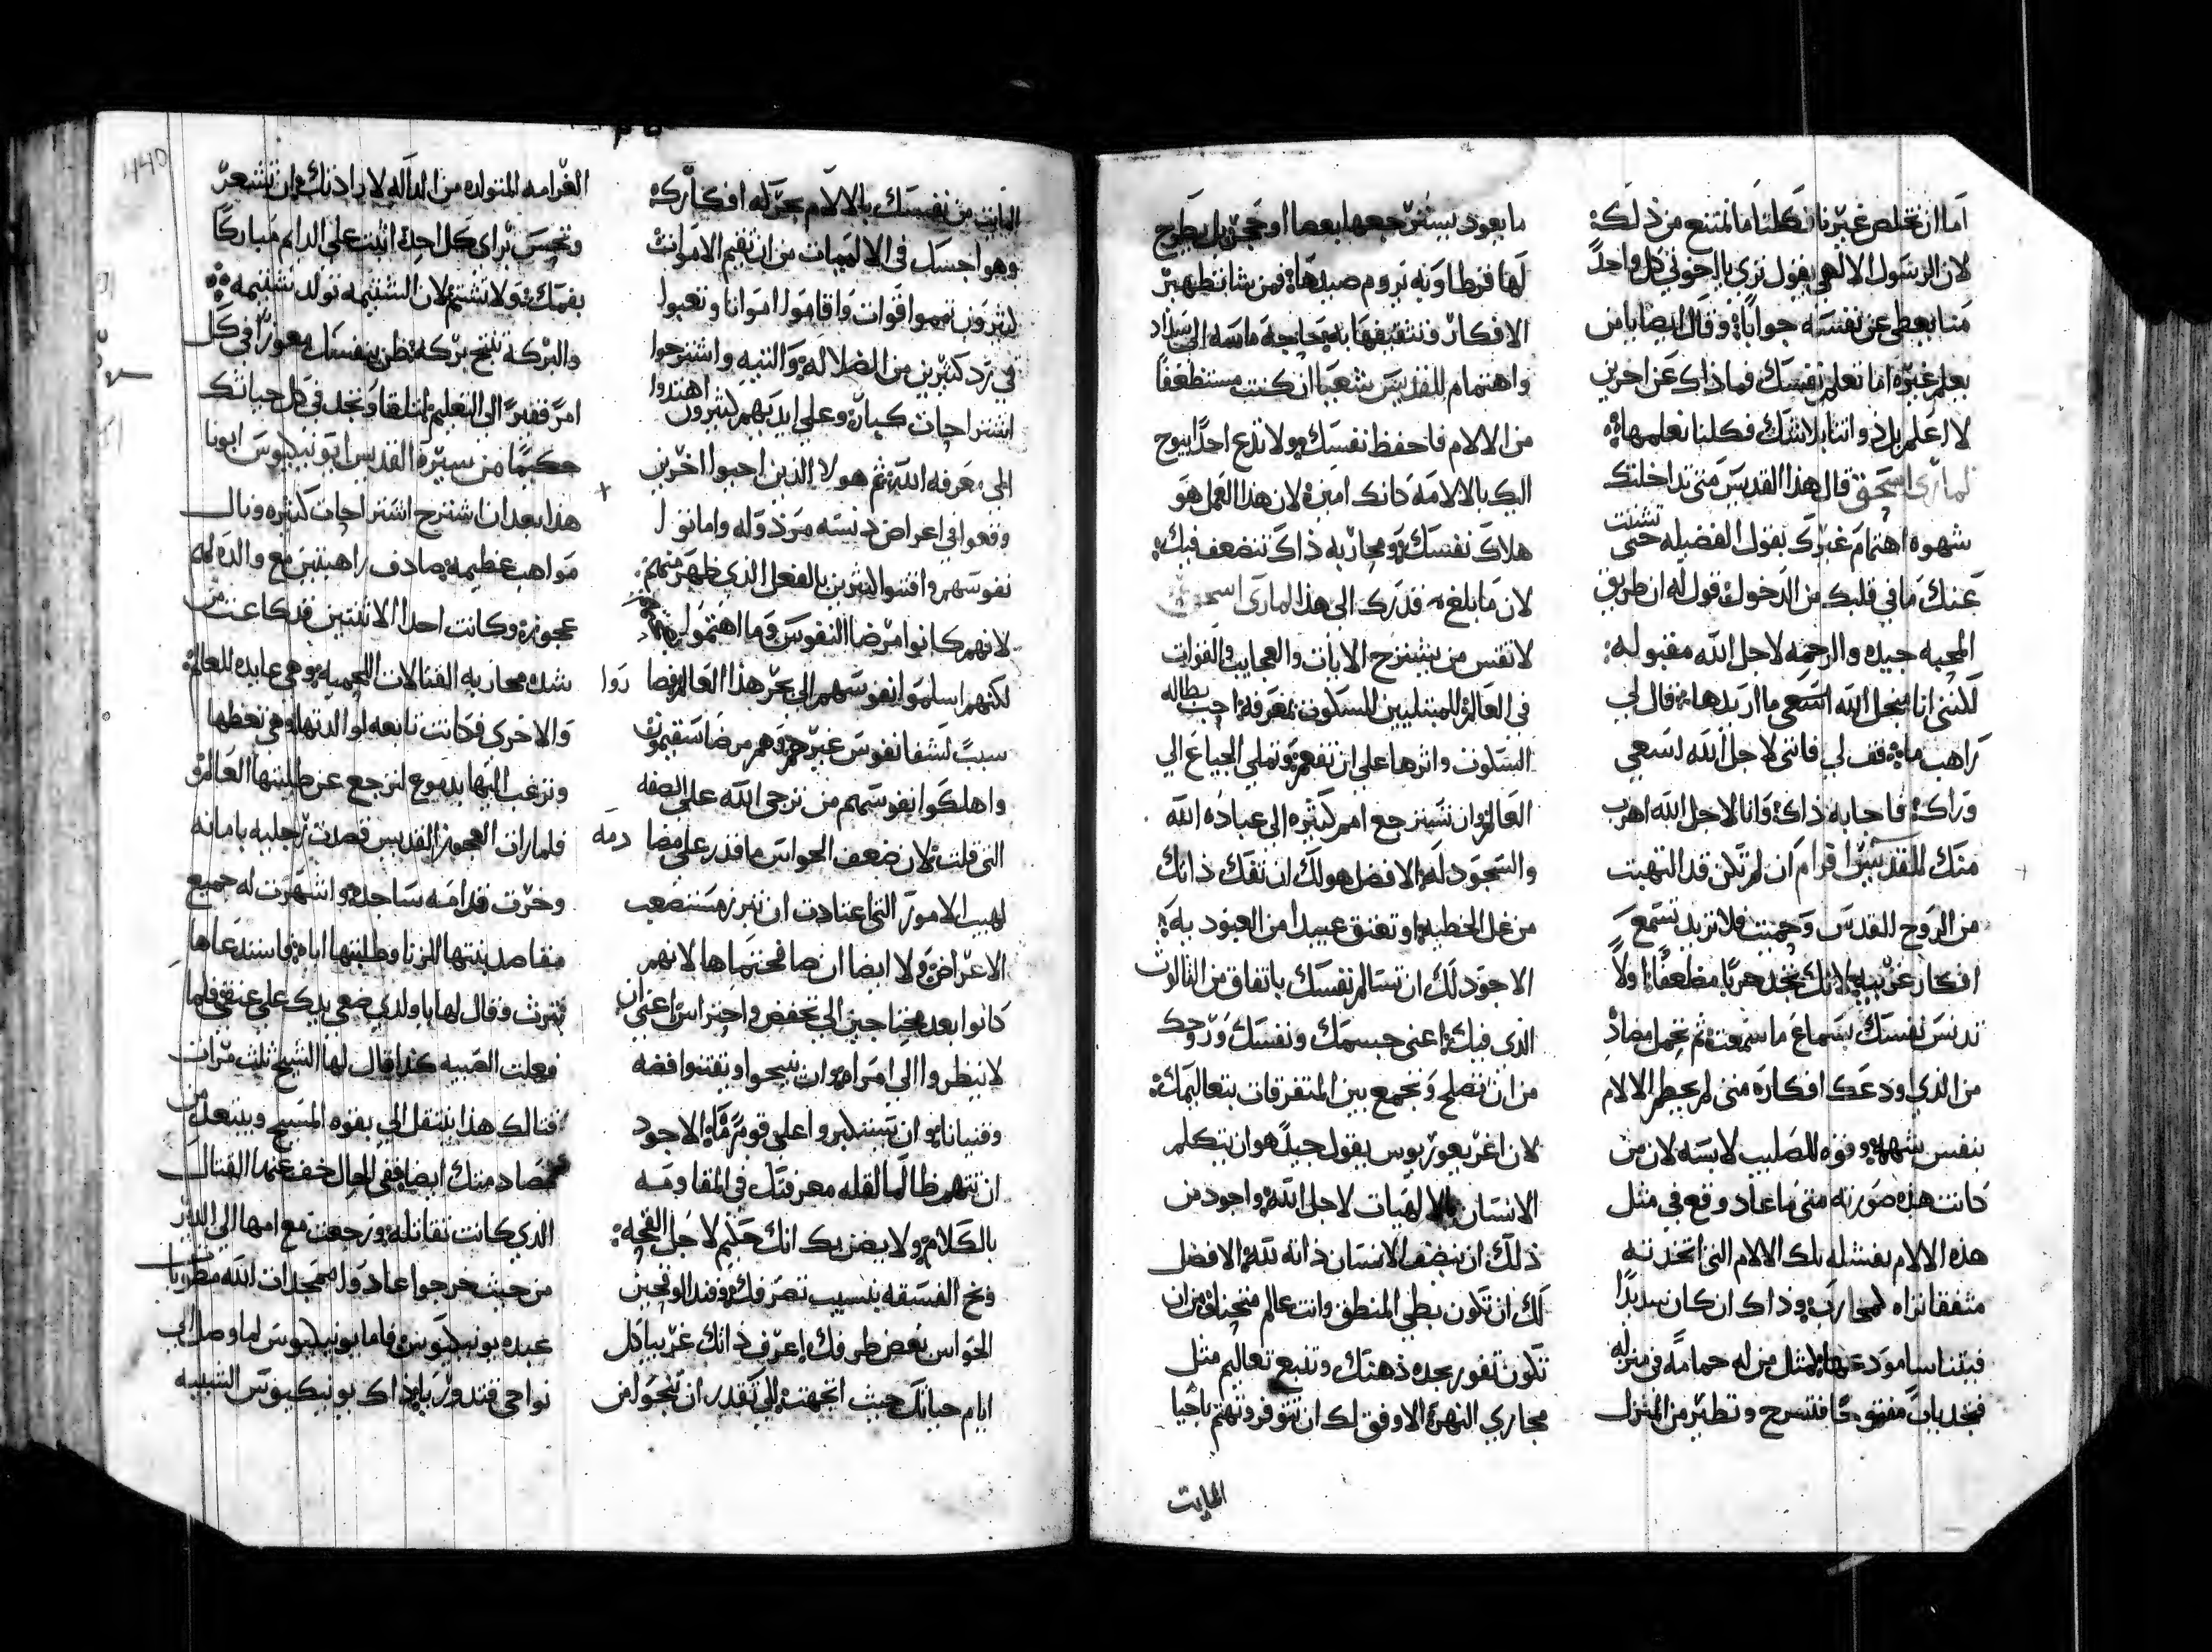 اما ان نخلص غيرنا فكلنا ما نمتنع من ذلك
لان الرسول الالهي يقول ترى يا اخوتي كل واحدًا
منا يعطي عن نفسه جوابا وقال ايضا يا من
يعلم غيره اما تعلم نفسك فماذاك عن اخرين
لا اعلم بل ذواتنا بلاشك فكلنا نعلمها
لماري اسحق قال هذا القديس متى تداخلتك
شهوه اهتمام غيرك بقول الفضيله حتى تشتت
عنك ما في قلبك من الدخول فقول له ان طريق
المحبه جيده والرحمه لاجل الله مقبوله
لكنني انا من اجل الله اريدها قال لي
راهب ما قف لي فانني لاجل الله اسعي
وراك فاجابه ذاك وانا لاجل الله اهرب
منك للقديس افرام ان لم تكن قد التهبت
من الروح القدس فلا تريد تسمع
افكار غريبه لانك تجد حربا مضاعفا اولاً
تدنس نفسك بسماع ما سمعت ثم تحمل مضاد
من الذي اودعك افكاره متى لم يحطم الالام
بنفس شهمه وقوه للصليب لابسه لان من
كانت هذه صورته متى ما عاد وقع في مثل
هذه الالام بفشله تلك الالام التي اتخذته
متفقا تراه لمحاربه وذاك ان كان
عنها لمثل من له حمامه في منزله
فيجد بابا مفتوحا فتسرح وتطير من المنزل
ما يعود يستر جمعها بعصا او حجر بل يطرح
لها قرطما وبه يروم صيدها فمن شا تطهير
الافكار
واهتمام للقديس شعيا ان كنت مستضعفا
من الالام فاحفظ نفسك ولا تدع احدا يبوح
اليك بالالامه كانك امين لان هذا العمل هو
هلاك نفسك ومحاربه ذاك تتضعف فيك
لان ما بلغ قدرك الي هذا لماري اسحق
لا تقس من يشترح الايات والعجايب والقوات
في العالم للمبتليين السكون بمعرفه احب بطاله
السكون واثرها علي ان تفعم وتملي الجياع الي
العالم وان تسترجع امم كثيره الي عباده الله
والسجود له الافضل هو لك ان تفك ذاتك
من غل الخطيه او تعتق عبيدا من العبوديه
الاجود لك ان تسالم نفسك باتفاق من الثالوث
الذي فيك اعني جسمك ونفسك وروحك
من ان تصلح وتجمع بين المتفرقات بتعاليمك
لان اغريغوريوس يقول جيدً هو ان يتكلم
الانسان بالالهيات لاجل الله واجود من
ذلك ان ينضف الانسان ذاته لله الافضل
لك ان تكون بطي المنطق وانت عالم من ان
تكون تفور بحده ذهنك وتنبع تعاليم مثل
مجاري النهر الاوفق لك ان تتوفر وتهتم باحيا
المايت
المايت من نفسك بالالام بحركه افكارك
وهواجسك في الالهيات من ان تقيم الاموات
كثيرون تمموا قوات واقاموا امواتا وتعبوا
في رد كثيرين من الضلاله والتيه واشترحوا
اشتراحات كبار وعلي ايديهم كثيرون اهتدوا
الي معرفه الله ثم هولا الذين احيوا اخرين
وقعوا في اعراض دنسه مرذوله واماتوا
نفوسهم وافتنوا كثيرين بالفعل الذي ظهر منهم
لانهم كانوا مرضا النفوس وما اهتموا
لكنهم اسلموا نفوسهم الي بحر هذا العالم
سبب لشفا نفوس غيرهم وهم مرضا سقيمون
واهلكوا نفوسهم من ترجي الله علي الصفه
التي قلت لان ضعف الحواس ما قدر علي مصا دمه
لهيب الامور التي اعتادت ان تبرز مستصعب
الاعراض ولا ايضا ان صافحتماها لانهم
كانوا بعد محتاجين الي تحفض واحتراس اعني ان
لا ينظروا الي امراه وان ينيحوا ويقتنوا فضه
وقنيانا وان يتكبروا علي قوم ما الاجود
ان تتهم ظالما لقله معرفتك في المقاومه
بالكلام ولا يضر بك انك حليم لاجل القحه
وبخ الفسقه بنسيب تصرفك وفند الوقحين
الحواس بغض طرفك اعرف ذاتك غريبا كل
ايام حياتك حيث اتجهت لكي تقدر ان تنجوا من
الغرامه المتولده من الداله لارادتك وان تشعر
وتحسن براي كل احد اثبت علي الدايم مباركا
بفمك ولا تشتم لان الشتيمه تولد شتيمه
والبركه تنتج بركه ظن بنفسك معوزا في كل
امر فقيرً الي التعليم لتلفا وتجد في كل حياتك
حكيمًا من سيره القديس ابو نيكيوس ابونا
هذا بعد ان اشترح اشتراحات كثيره ونال
مواهب عظيمه صادف راهبتين مع والده لهم
عجوزه وكانت احدا الاثنتين قد كاعت من
شده محاربه القتالات اللحميه وهي عايده للعالم
والاخرى فكانت تابعه لوالدتها وهي تعظها
وترغب اليها بدموع لترجع عن طلبتها العالم
فلما رات العجوز القديس قصدت رجليه بامانه
وخرت قدامه ساجده واشتهرت له جميع
مقاصد بنتها الزنا وطلبتها اياه فاستدعاها
وقال لها يا ولدي ضعي يدك علي عنقي فلما
فعلت الصبيه كذا قال لها الشيخ ثلث مرات
قتالك هذا ينتقل الي بقوه المسيح ويبتعد من
مضاد منك ايضا ففي الحال خف عنها القتال
الذي كانت تقاتله ورجعت مع امها الي الدير
من حيث خرجوا عادوا ممجدات الله مطوبا
عبده يونيكيوس فاما يونيكيوس لما وصل الي
نواحي قندوربا ذاك يونيكيوس الشبيه